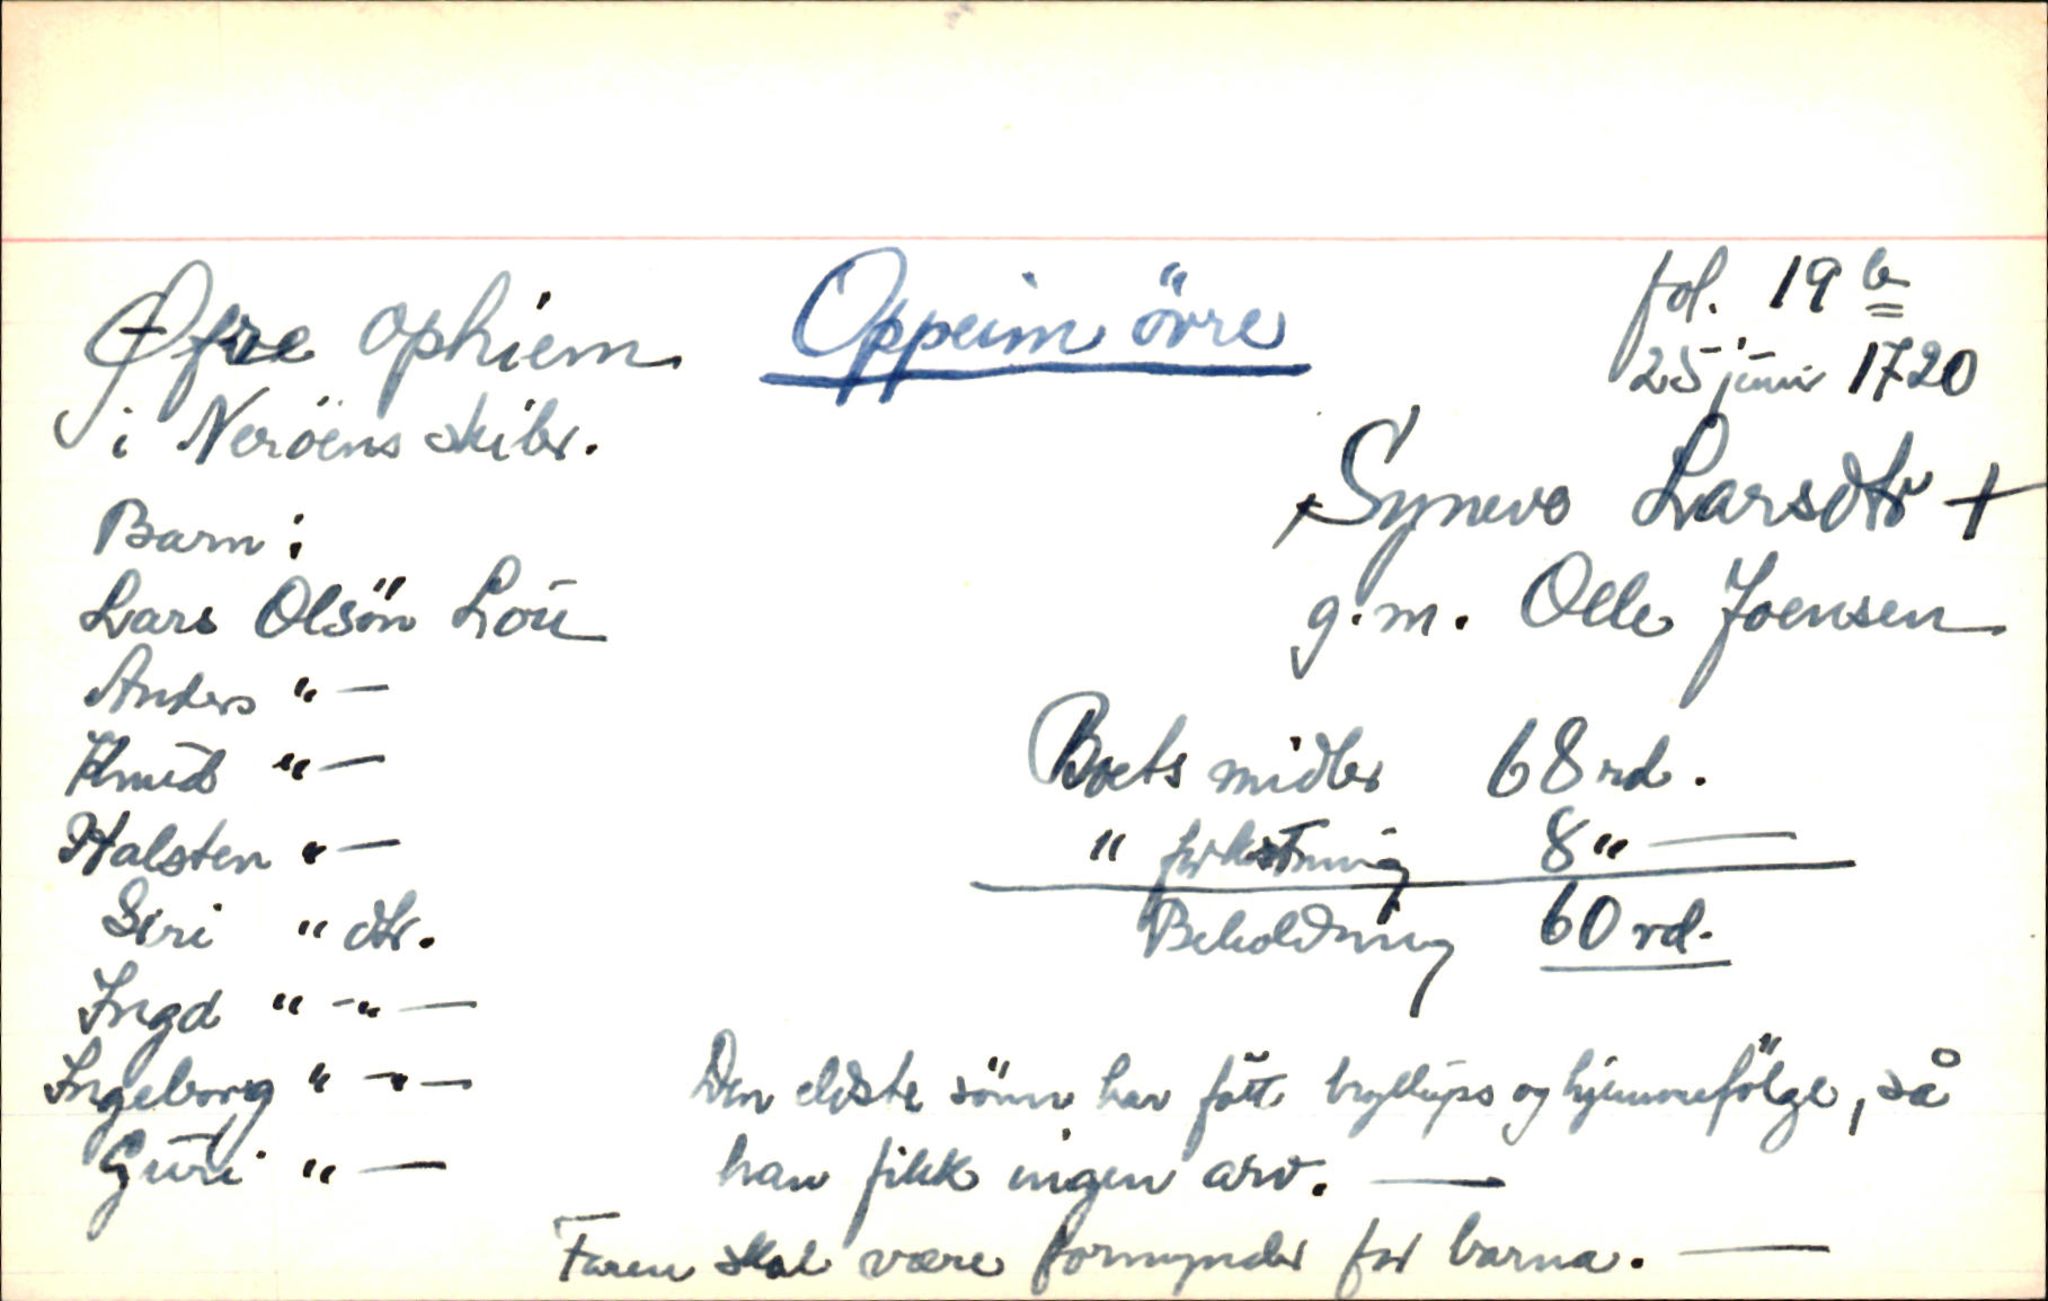 Øfre Ophiem
i Neröens skibr.
Oppeim övre
fol. 19 b
25 juni 1720
Synevo Larsdtr +
g.m. Olle Joensen
Barn:
Lars Olsön Loii
Anders " —
Knud " —
Halsten " —
Siri " dtr.
Ingd " - " —
Ingeborg " - " —
Guri " —
Boets midler 68 rd.
" forkostning 8 " —
Beholdning 60 rd.
Den eldste sönn har fått bryllups og hjemmefölge, så
han fikk ingen arv. —
Faren skal være formynder for barna. —